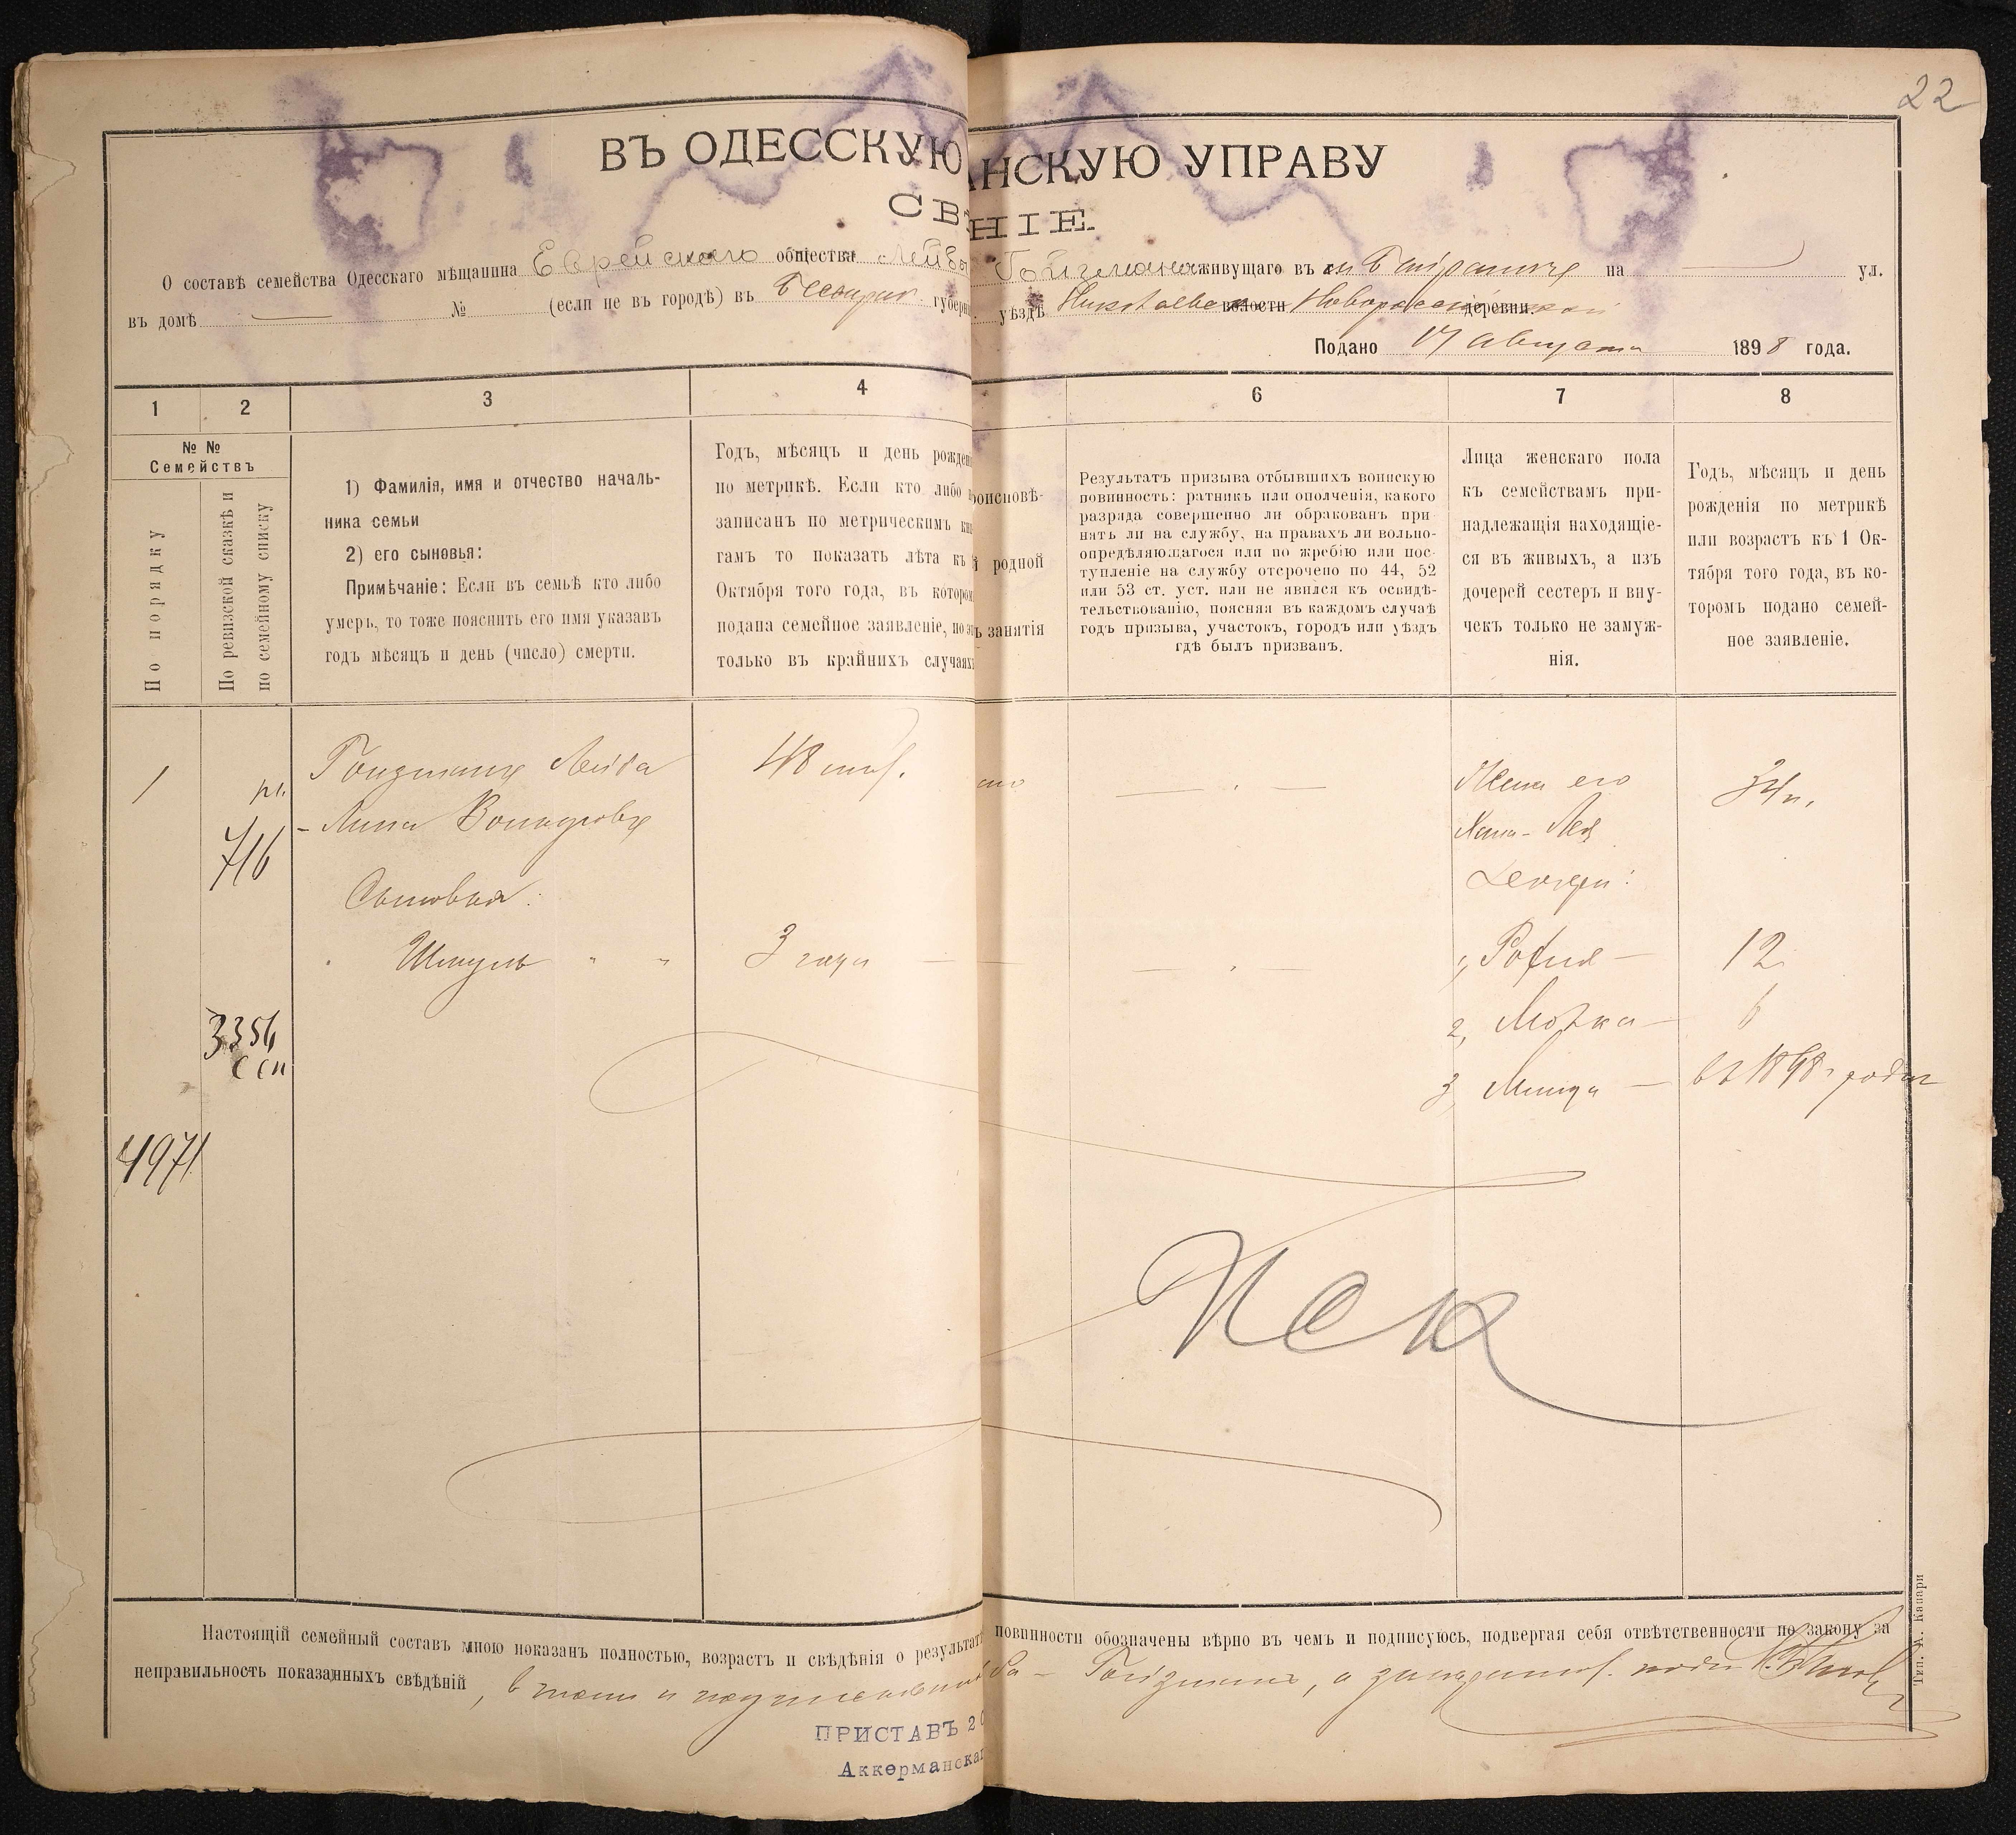 22
ВЪ ОДЕССКУЮ АНСКУЮ УПРАВУ
СВѢ НІЕ.
О составѣ семейства Одесскаго мѣщанина Еврейскаго общества Лейбы Гойзмана живущаго въ на ул.
въ домѣ № (если не въ городѣ) въ Бессараб. губерн уѣздѣ волости деревни.
Подано 17 Августа 1898 года.
1 2 3 4 6 7 8
№ №
Семействъ
По порядку
По ревизской сказкѣ и
по семейному списку
1) Фамилія, имя и отчество началь-
ника семьи
2) его сыновья:
Примѣчаніе: Если въ семьѣ кто либо
умеръ, то тоже пояснить его имя указавъ
годъ мѣсяцъ и день (число) смерти.
Годъ, мѣсяцъ и день рожден
по метрикѣ. Если кто либо н
записанъ по метрическимъ кни
гамъ то показать лѣта къ
Октября того года, въ которо
подана семейное заявленіе, но э
только въ крайнихъ случаях
роисповѣ-
родной
занятія
Результатъ призыва отбывшихъ воинскую
повинность: ратникъ или ополченія, какого
разряда совершенно ли обракованъ при
нятъ ли на службу, на правахъ ли вольно-
опредѣляющагося или по жребію или пос-
тупленіе на службу отсрочено по 44, 52
или 53 ст. уст. или не явился къ освидѣ-
тельствованію, поясняя въ каждомъ случаѣ
годъ призыва, участокъ, городъ или уѣздъ
гдѣ былъ призванъ.
Лица женскаго пола
къ семействамъ при-
надлежащія находящіе-
ся въ живыхъ, а изъ
дочерей сестеръ и вну-
чекъ только не замуж-
нія.
Годъ, мѣсяцъ и день
рожденія по метрикѣ
или возрастъ къ 1 Ок-
тября того года, въ ко-
торомъ подано семей-
ное заявленіе.
1 Гойзманъ Лейба 48 Жена его 34
716 Хана-Лея
Сыновья: Дочери:
Шмуль " " 3 года 1, 12
2, 6
3354
3, въ 1898 г. родил
4971
Настоящій семейный составъ мною показанъ полностью, возрастъ и свѣдѣнія о результат повинности обозначены вѣрно въ чемъ и подписуюсь, подвергая себя отвѣтственности по закону за
неправильность показанныхъ свѣдѣній, в том и Гойзманъ, а
ПРИСТАВЪ 2
Аккерманска
Тип. А. Канари